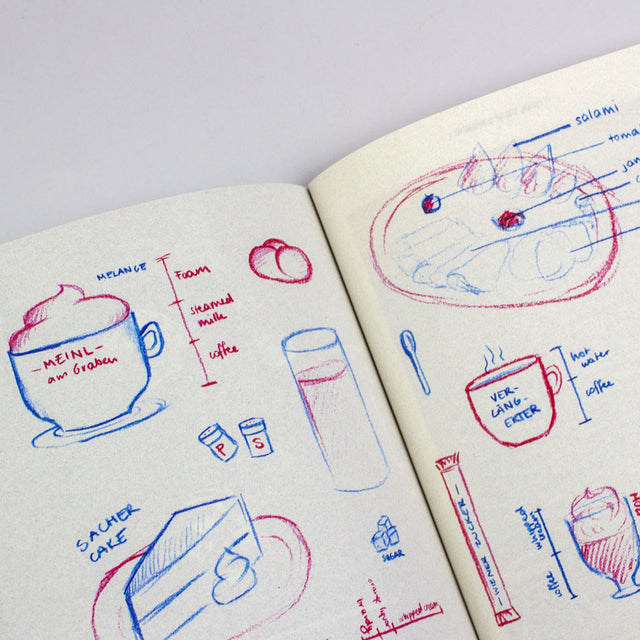 MELANGE
Foam
steamed
milk
coffee
-MEINL-
am Graben
P
S
SACHER
CAKE
SUGAR
whipped cream
salami
hot
water
coffee
VER-
LÄNG-
ERTER
- WIENER ZUCKER -